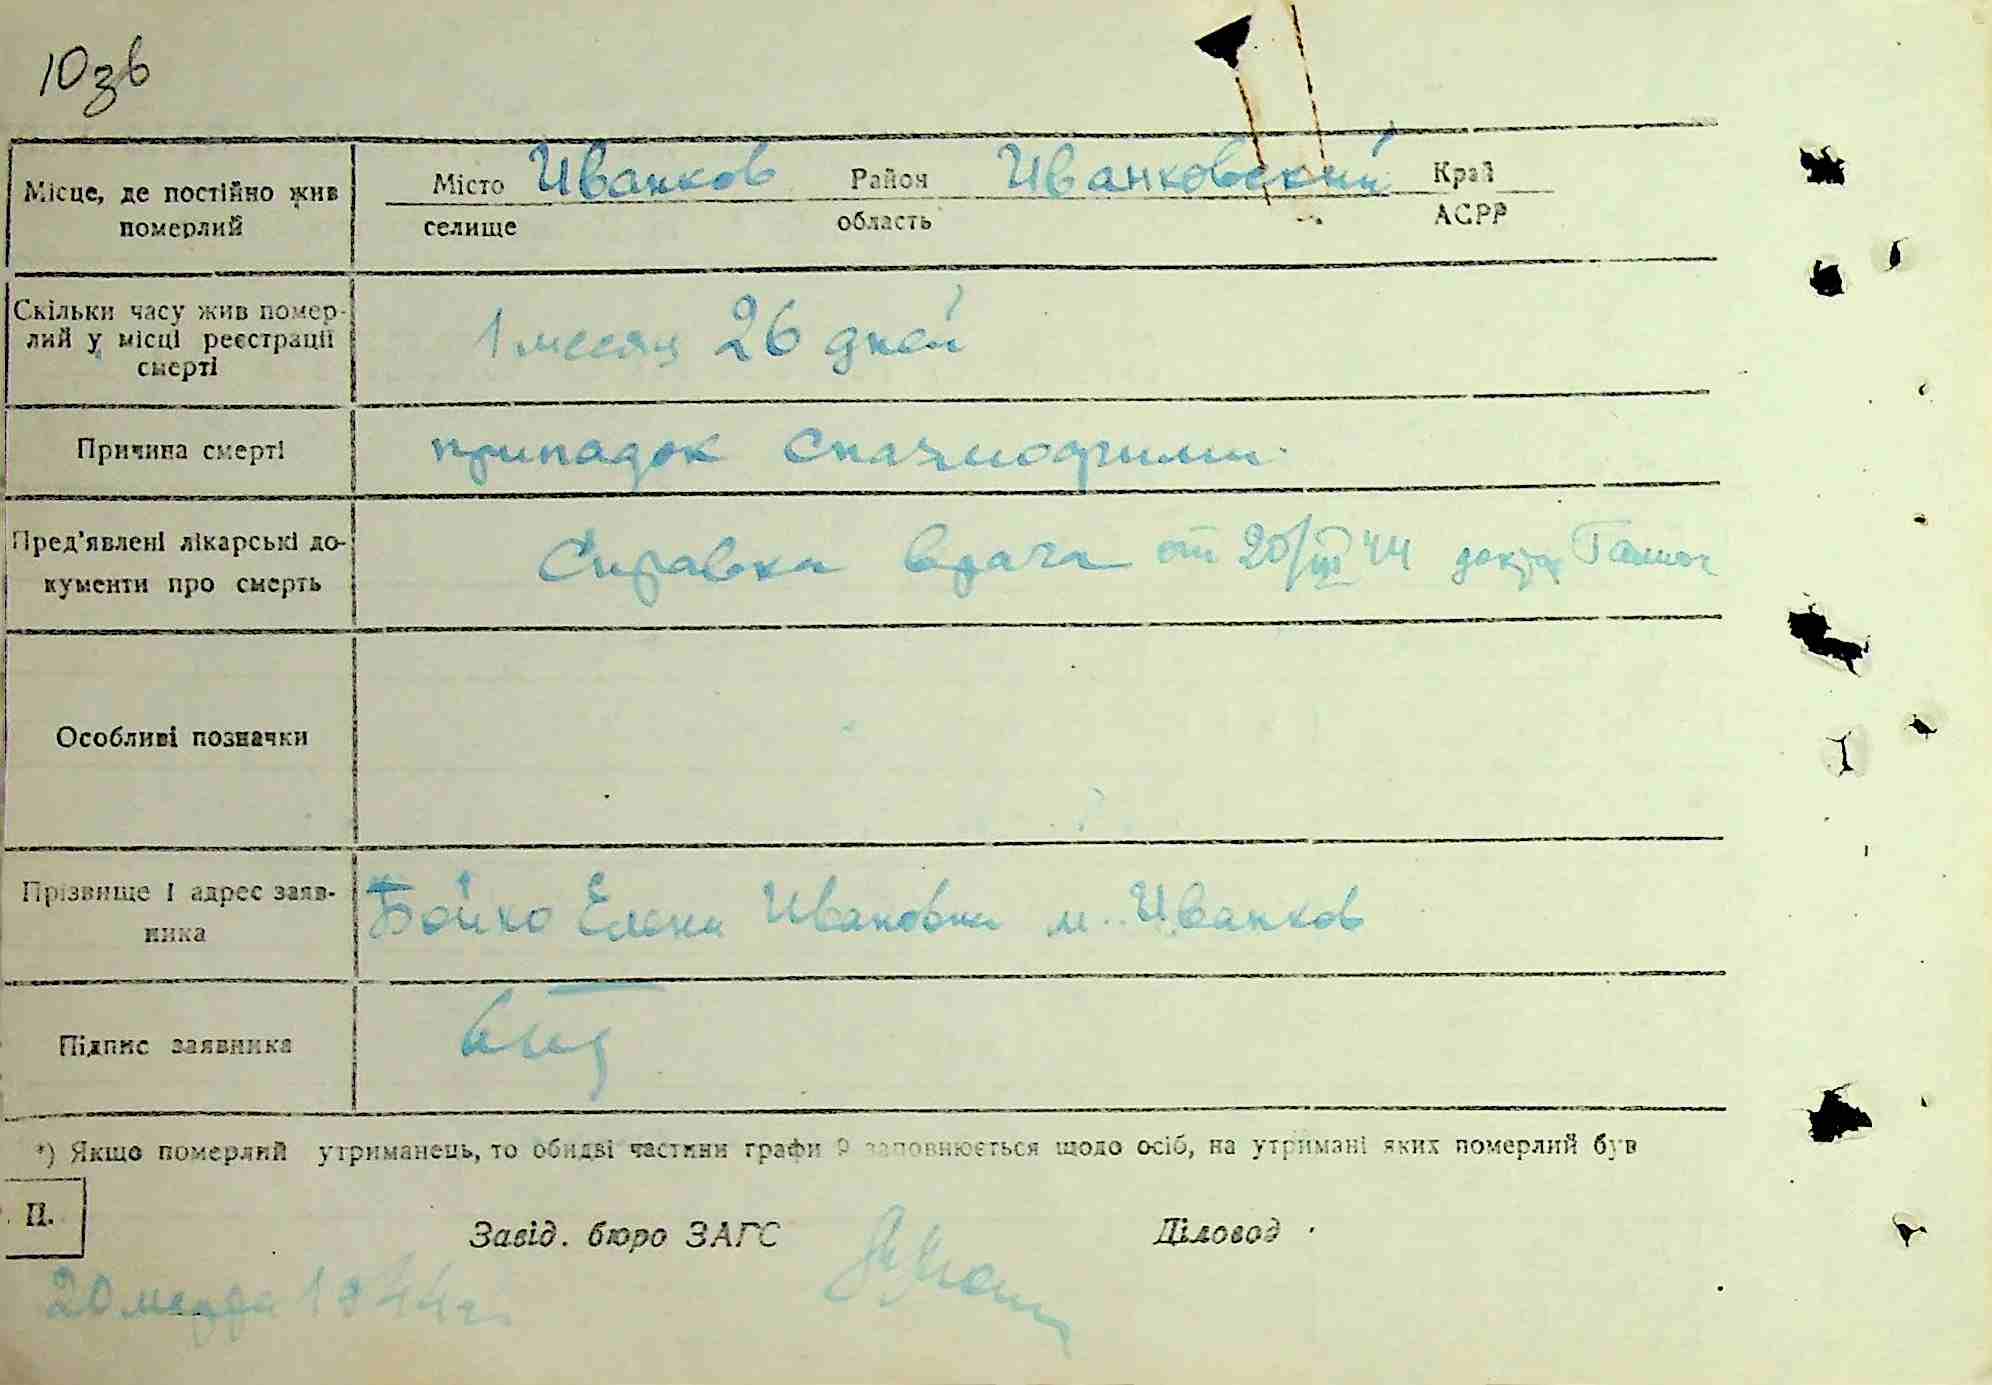 10зв
Місце, де постійно жив
померлий
Місто Иванков Район Иванковский Край
селище область АСРР
Скільки часу жив помер-
лий у місці реєстрації
смерті
1 месяц 26 дней
Причина смерті
припадок спазмофилии.
Пред'явлені лікарські до-
кументи про смерть
Справка врача от 20/III 44
Особливі позначки
Прізвище і адрес заяв-
ника
Бойко Елена Ивановна м. Иванков
Підпис заявника
*) Якщо померлий утриманець, то обидві частини графи 9 заповнюється щодо осіб, на утримані яких померлий був
П.
Завід. бюро ЗАГС Діловод
20 марта 1944 г.